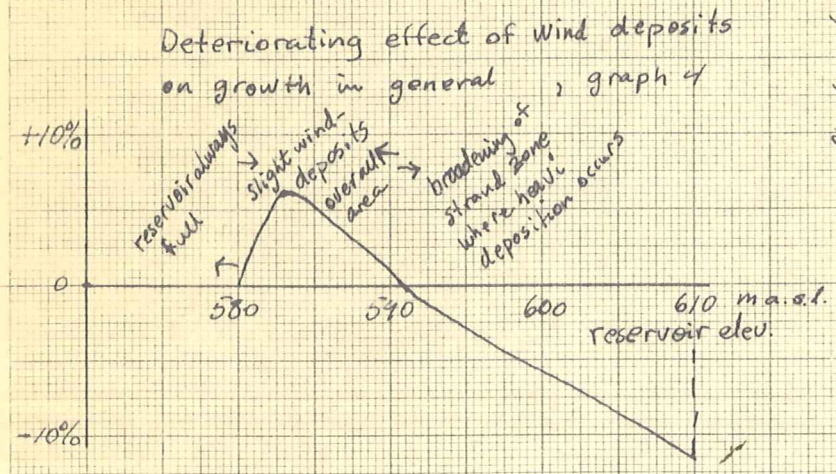 Deteriorating effect of wind deposits
on growth in general , graph 4
+10%
reservoir always
full
slight wind-
deposits
overall
area
broadening of
strand zone
where heavi
deposition occurs
0
580
590
600
610 m a.s.l.
reservoir elev.
-10%